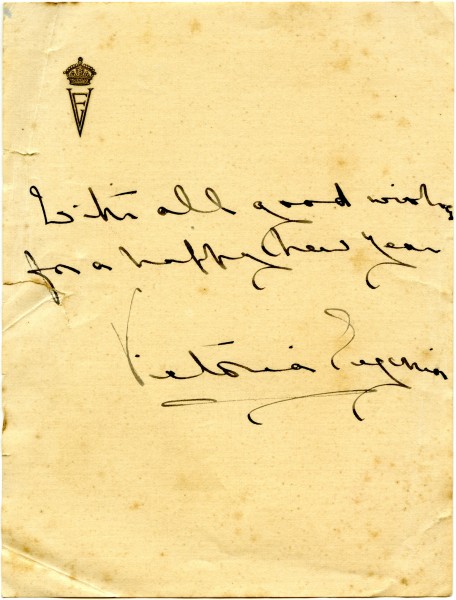 VE
With all good wishes
for a happy New Year
Victoria Eugenia